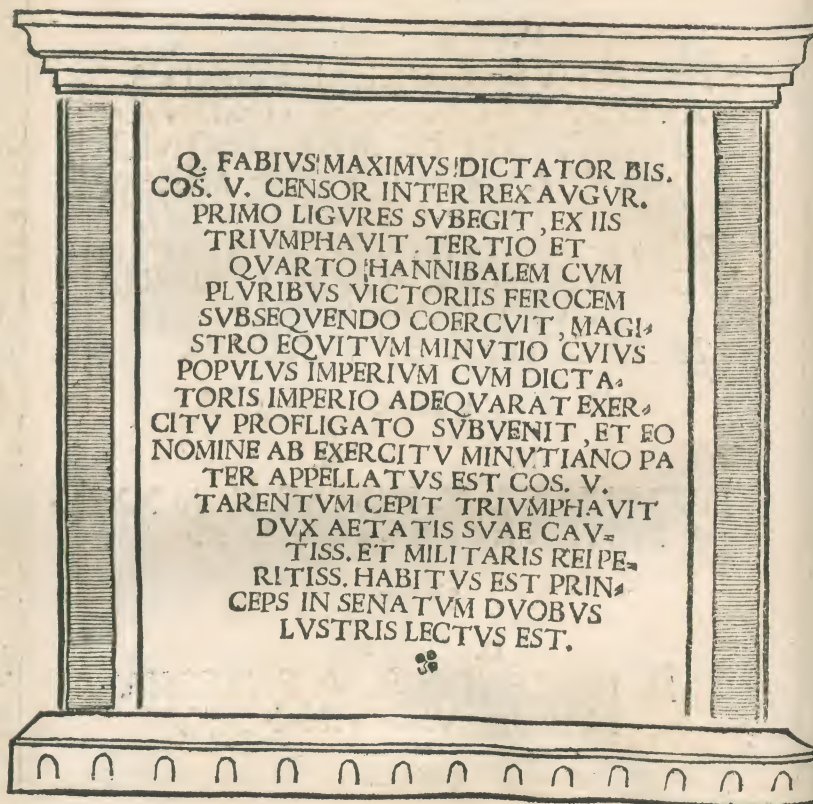 Q. FABIVS MAXIMVS DICTATOR BIS.
COS. V. CENSOR INTER REX AVGVR.
PRIMO LIGVRES SVBEGIT, EX IIS
TRIVMPHAVIT. TERTIO ET
QVARTO HANNIBALEM CVM
PLVRIBVS VICTORIIS FEROCEM
SVBSEQVENDO COERCVIT, MAGI-
STRO EQVITVM MINVTIO CVIVS
POPVLVS IMPERIVM CVM DICTA-
TORIS IMPERIO ADEQVARAT EXER-
CITV PROFLIGATO SVBVENIT, ET EO
NOMINE AB EXERCITV MINVTIANO PA
TER APPELLATVS EST COS. V.
TARENTVM CEPIT TRIVMPHAVIT
DVX AETATIS SVAE CAV=
TISS. ET MILITARIS REI PE=
RITISS. HABITVS EST PRIN-
CEPS IN SENATVM DVOBVS
LVSTRIS LECTVS EST.